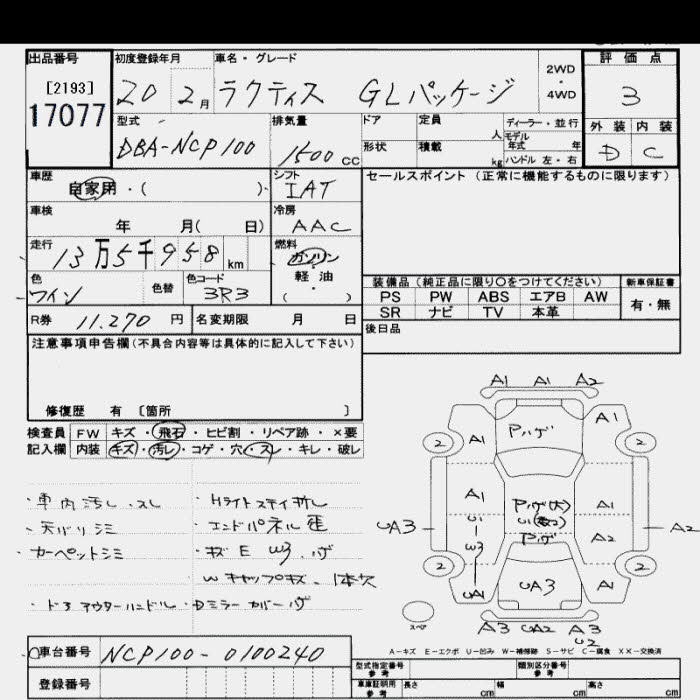 出品番号
[2193]
17077
初度登録年月
20 2月
車名・グレード
ラクティス GLパッケージ
2WD
・
4WD
評価点
3
外装 内装
D C
型式
DBA-NCP100
排気量
1500cc
ドア
定員 人
形状
積載 kg
ディーラー・並行
モデル
年式 年
ハンドル 左・右
車歴
自家用・( )
シフト
IAT
セールスポイント(正常に機能するものに限ります)
車検
年 月( 日)
冷房
AAC
走行
13万5千958km
燃料
ガソリン
軽・油
( )
色
ワイン
色替
色コード
3R3
装備品(純正品に限り○をつけてください)
新車保証書
PS PW ABS エアB AW
SR ナビ TV 本革
有・無
R券 11.270円
名変期限 月 日
後日品
注意事項申告欄(不具合内容等は具体的に記入して下さい)
修復歴 有 〔箇所 〕
検査員
記入欄
FW キズ・飛石・ヒビ割・リペア跡・×要
内装 キズ・汚レ・コゲ・穴・スレ・キレ・破レ
・車内汚レ.スレ
・天バリシミ
・カーペットシミ
・ドアアウターハンドル
・Hライトステイ折レ
・エンドパネル歪
・キズ E W3.ハゲ
Wキャップキズ.1本欠
・Dミラーカバーハゲ
A1 A1 A2
A1 Pハゲ A1
2 2
A1 Pハゲ(大) A1
UA3 W3 Pハゲ A2 A2
2 2
UA1 UA3 A1
スペア
A3 UA2 A3
U2
A-キズ E-エクボ U-凹み W-補修跡 S-サビ C-腐食 XX-交換済
車台番号 NCP100-0100240
登録番号
型式指定番号
参考
類別区分番号
参考
車庫証明用
参考
長さ cm
幅 cm
高さ cm